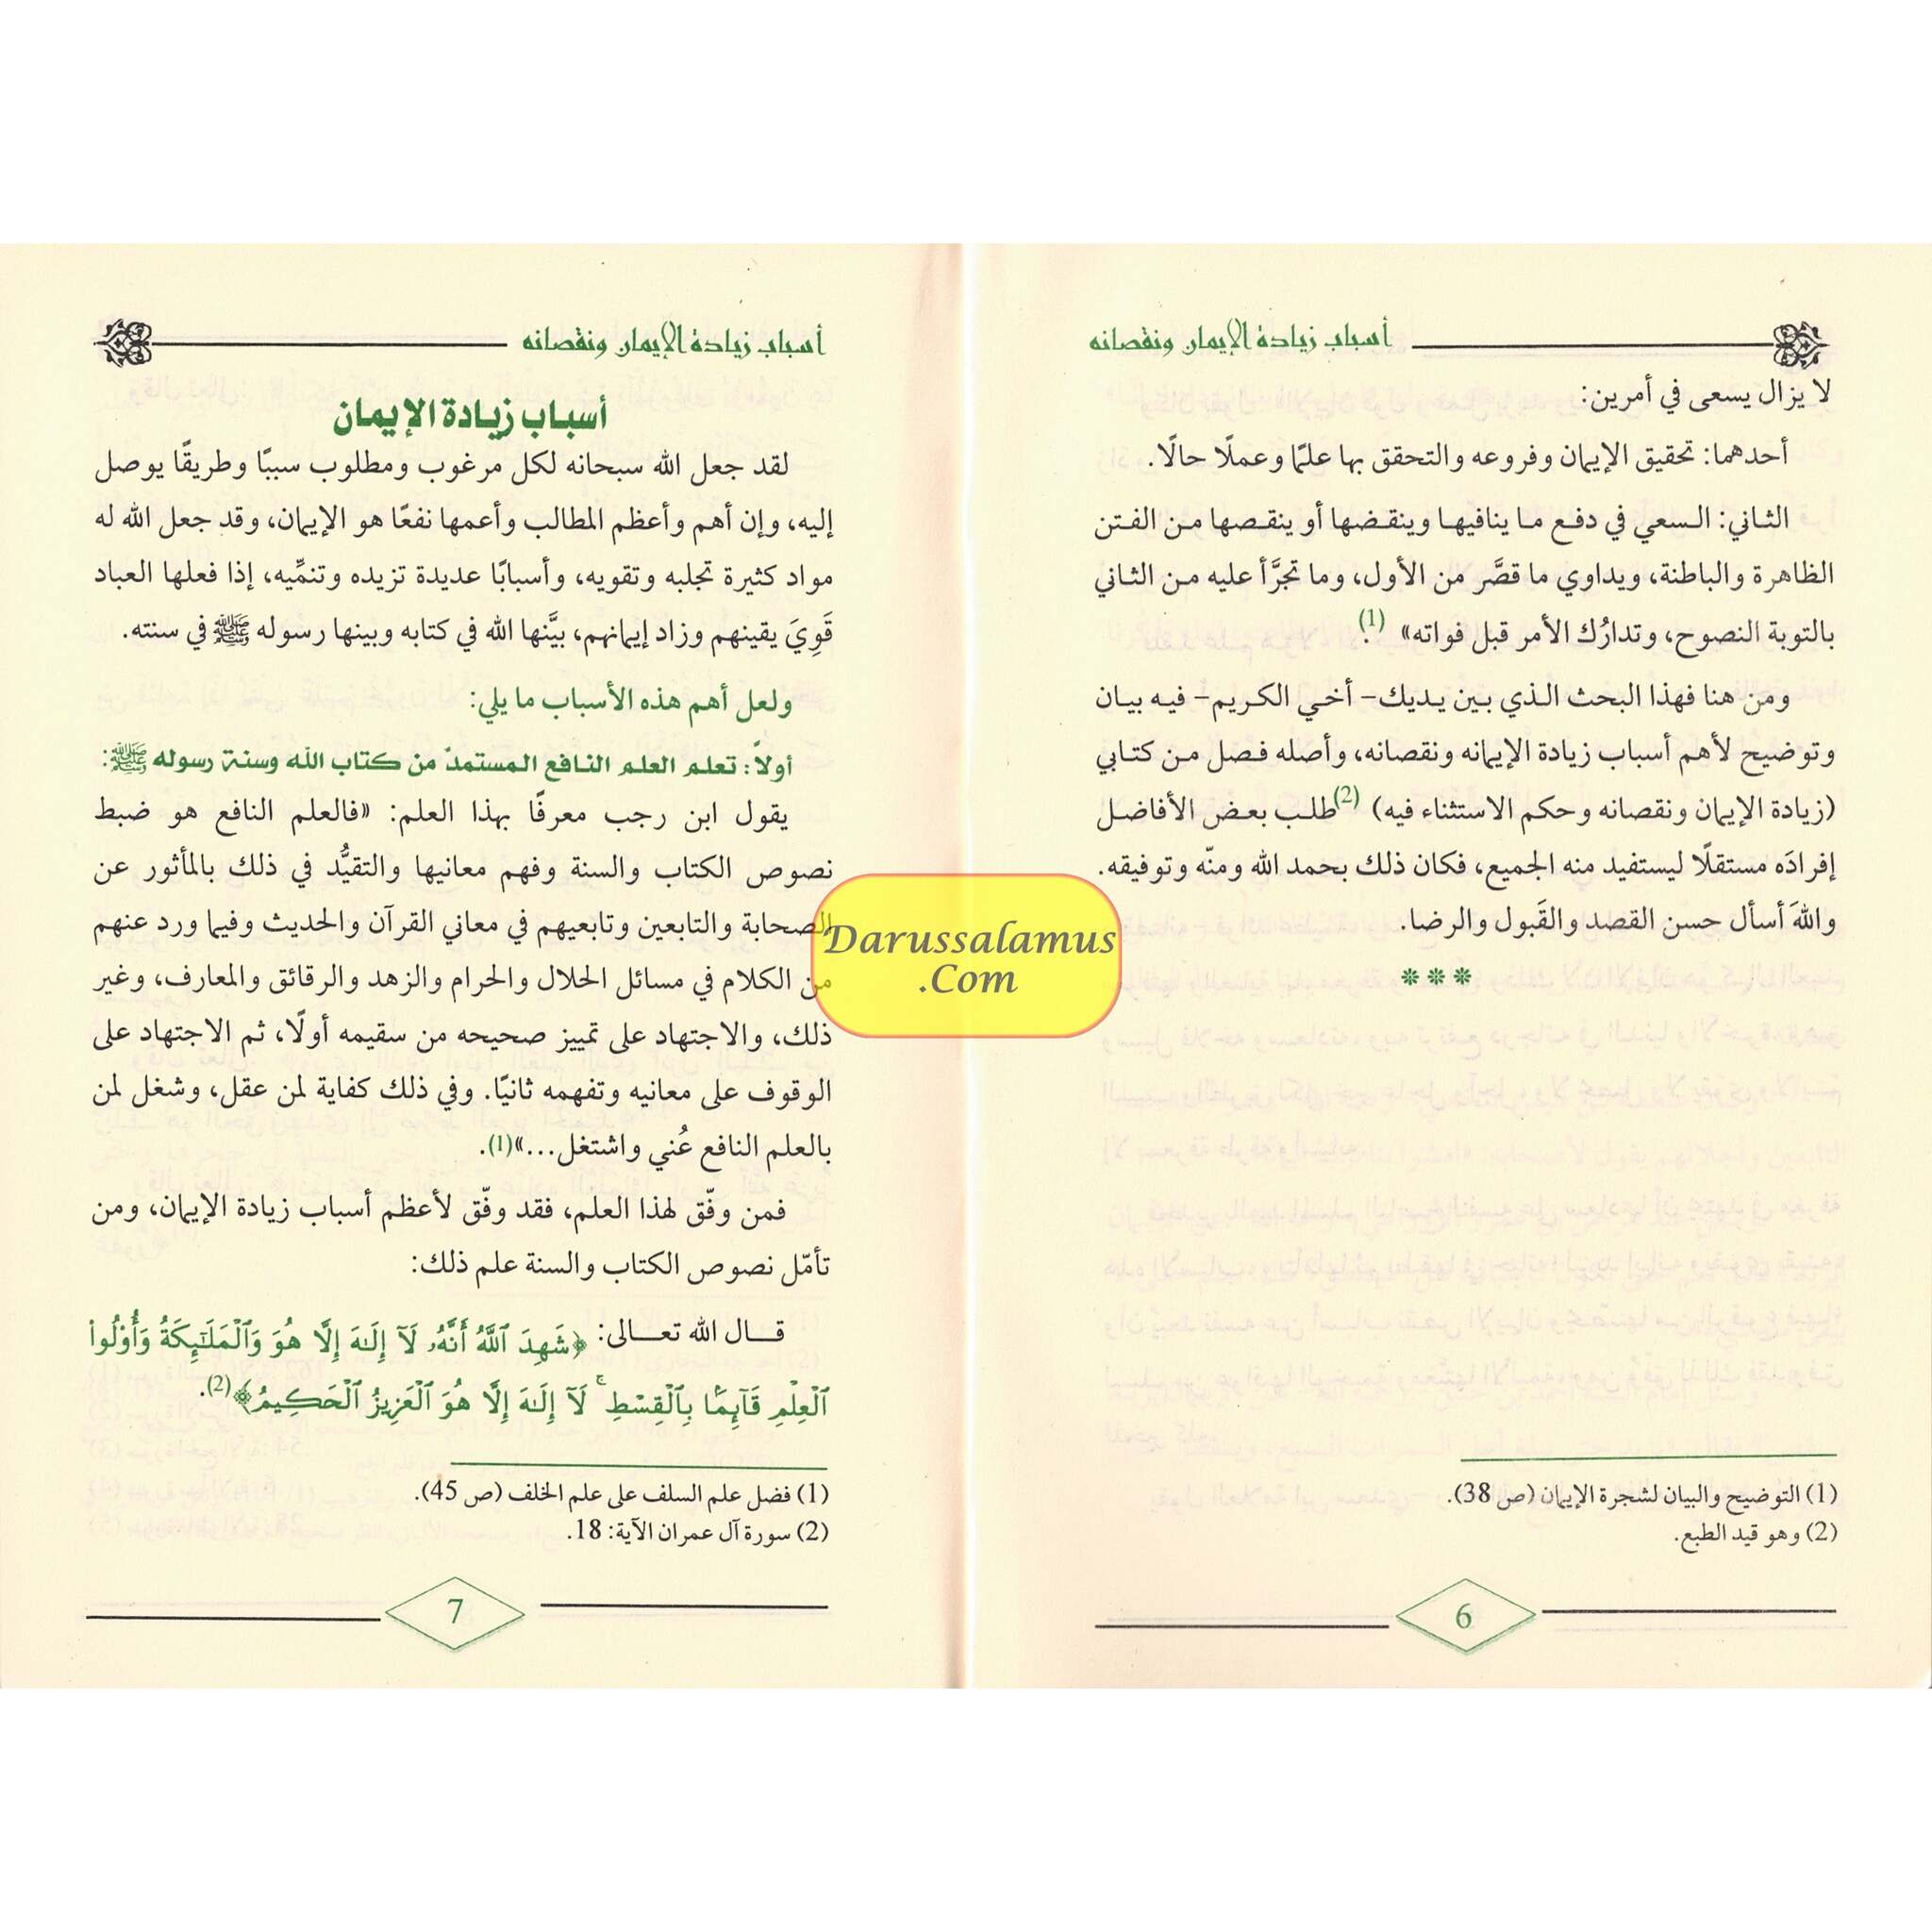 أسباب زيادة الإيمان ونقصانه
لا يزال يسعى في أمرين:
أحدهما: تحقيق الإيمان وفروعه والتحقق بها علمًا وعملًا حالًا.
الثاني: السعي في دفع ما ينافيها وينقضها أو ينقصها من الفتن
الظاهرة والباطنة، ويداوي ما قصَّر من الأول، وما تجرَّأ عليه من الثاني
بالتوبة النصوح، وتدارُك الأمر قبل فواته» (1).
ومن هنا فهذا البحث الذي بين يديك- أخي الكريم- فيه بيان
وتوضيح لأهم أسباب زيادة الإيمانه ونقصانه، وأصله فصل من كتابي
(زيادة الإيمان ونقصانه وحكم الاستثناء فيه) (2) طلب بعض الأفاضل
إفرادَه مستقلًا ليستفيد منه الجميع، فكان ذلك بحمد الله ومنّه وتوفيقه.
واللهَ أسأل حسن القصد والقَبول والرضا.
* * *
(1) التوضيح والبيان لشجرة الإيمان (ص 38).
(2) وهو قيد الطبع.
6
أسباب زيادة الإيمان ونقصانه
أسباب زيادة الإيمان
لقد جعل الله سبحانه لكل مرغوب ومطلوب سببًا وطريقًا يوصل
إليه، وإن أهم وأعظم المطالب وأعمها نفعًا هو الإيمان، وقد جعل الله له
مواد كثيرة تجلبه وتقويه، وأسبابًا عديدة تزيده وتنمِّيه، إذا فعلها العباد
قَوِيَ يقينهم وزاد إيمانهم، بيَّنها الله في كتابه وبينها رسوله ﷺ في سنته.
ولعل أهم هذه الأسباب ما يلي:
أولاً: تعلم العلم النافع المستمدّ من كتاب الله وسنة رسوله ﷺ:
يقول ابن رجب معرفًا بهذا العلم: «فالعلم النافع هو ضبط
نصوص الكتاب والسنة وفهم معانيها والتقيُّد في ذلك بالمأثور عن
الصحابة والتابعين وتابعيهم في معاني القرآن والحديث وفيما ورد عنهم
من الكلام في مسائل الحلال والحرام والزهد والرقائق والمعارف، وغير
ذلك، والاجتهاد على تمييز صحيحه من سقيمه أولًا، ثم الاجتهاد على
الوقوف على معانيه وتفهمه ثانيًا. وفي ذلك كفاية لمن عقل، وشغل لمن
بالعلم النافع عُني واشتغل...»(1).
فمن وفّق لهذا العلم، فقد وفّق لأعظم أسباب زيادة الإيمان، ومن
تأمّل نصوص الكتاب والسنة علم ذلك:
قال الله تعالى: ﴿شَهِدَ ٱللَّهُ أَنَّهُۥ لَآ إِلَٰهَ إِلَّا هُوَ وَٱلْمَلَٰٓئِكَةُ وَأُو۟لُوا۟
ٱلْعِلْمِ قَآئِمًۢا بِٱلْقِسْطِ ۚ لَآ إِلَٰهَ إِلَّا هُوَ ٱلْعَزِيزُ ٱلْحَكِيمُ﴾(2).
(1) فضل علم السلف على علم الخلف (ص 45).
(2) سورة آل عمران الآية: 18.
7
Darussalamus
.Com